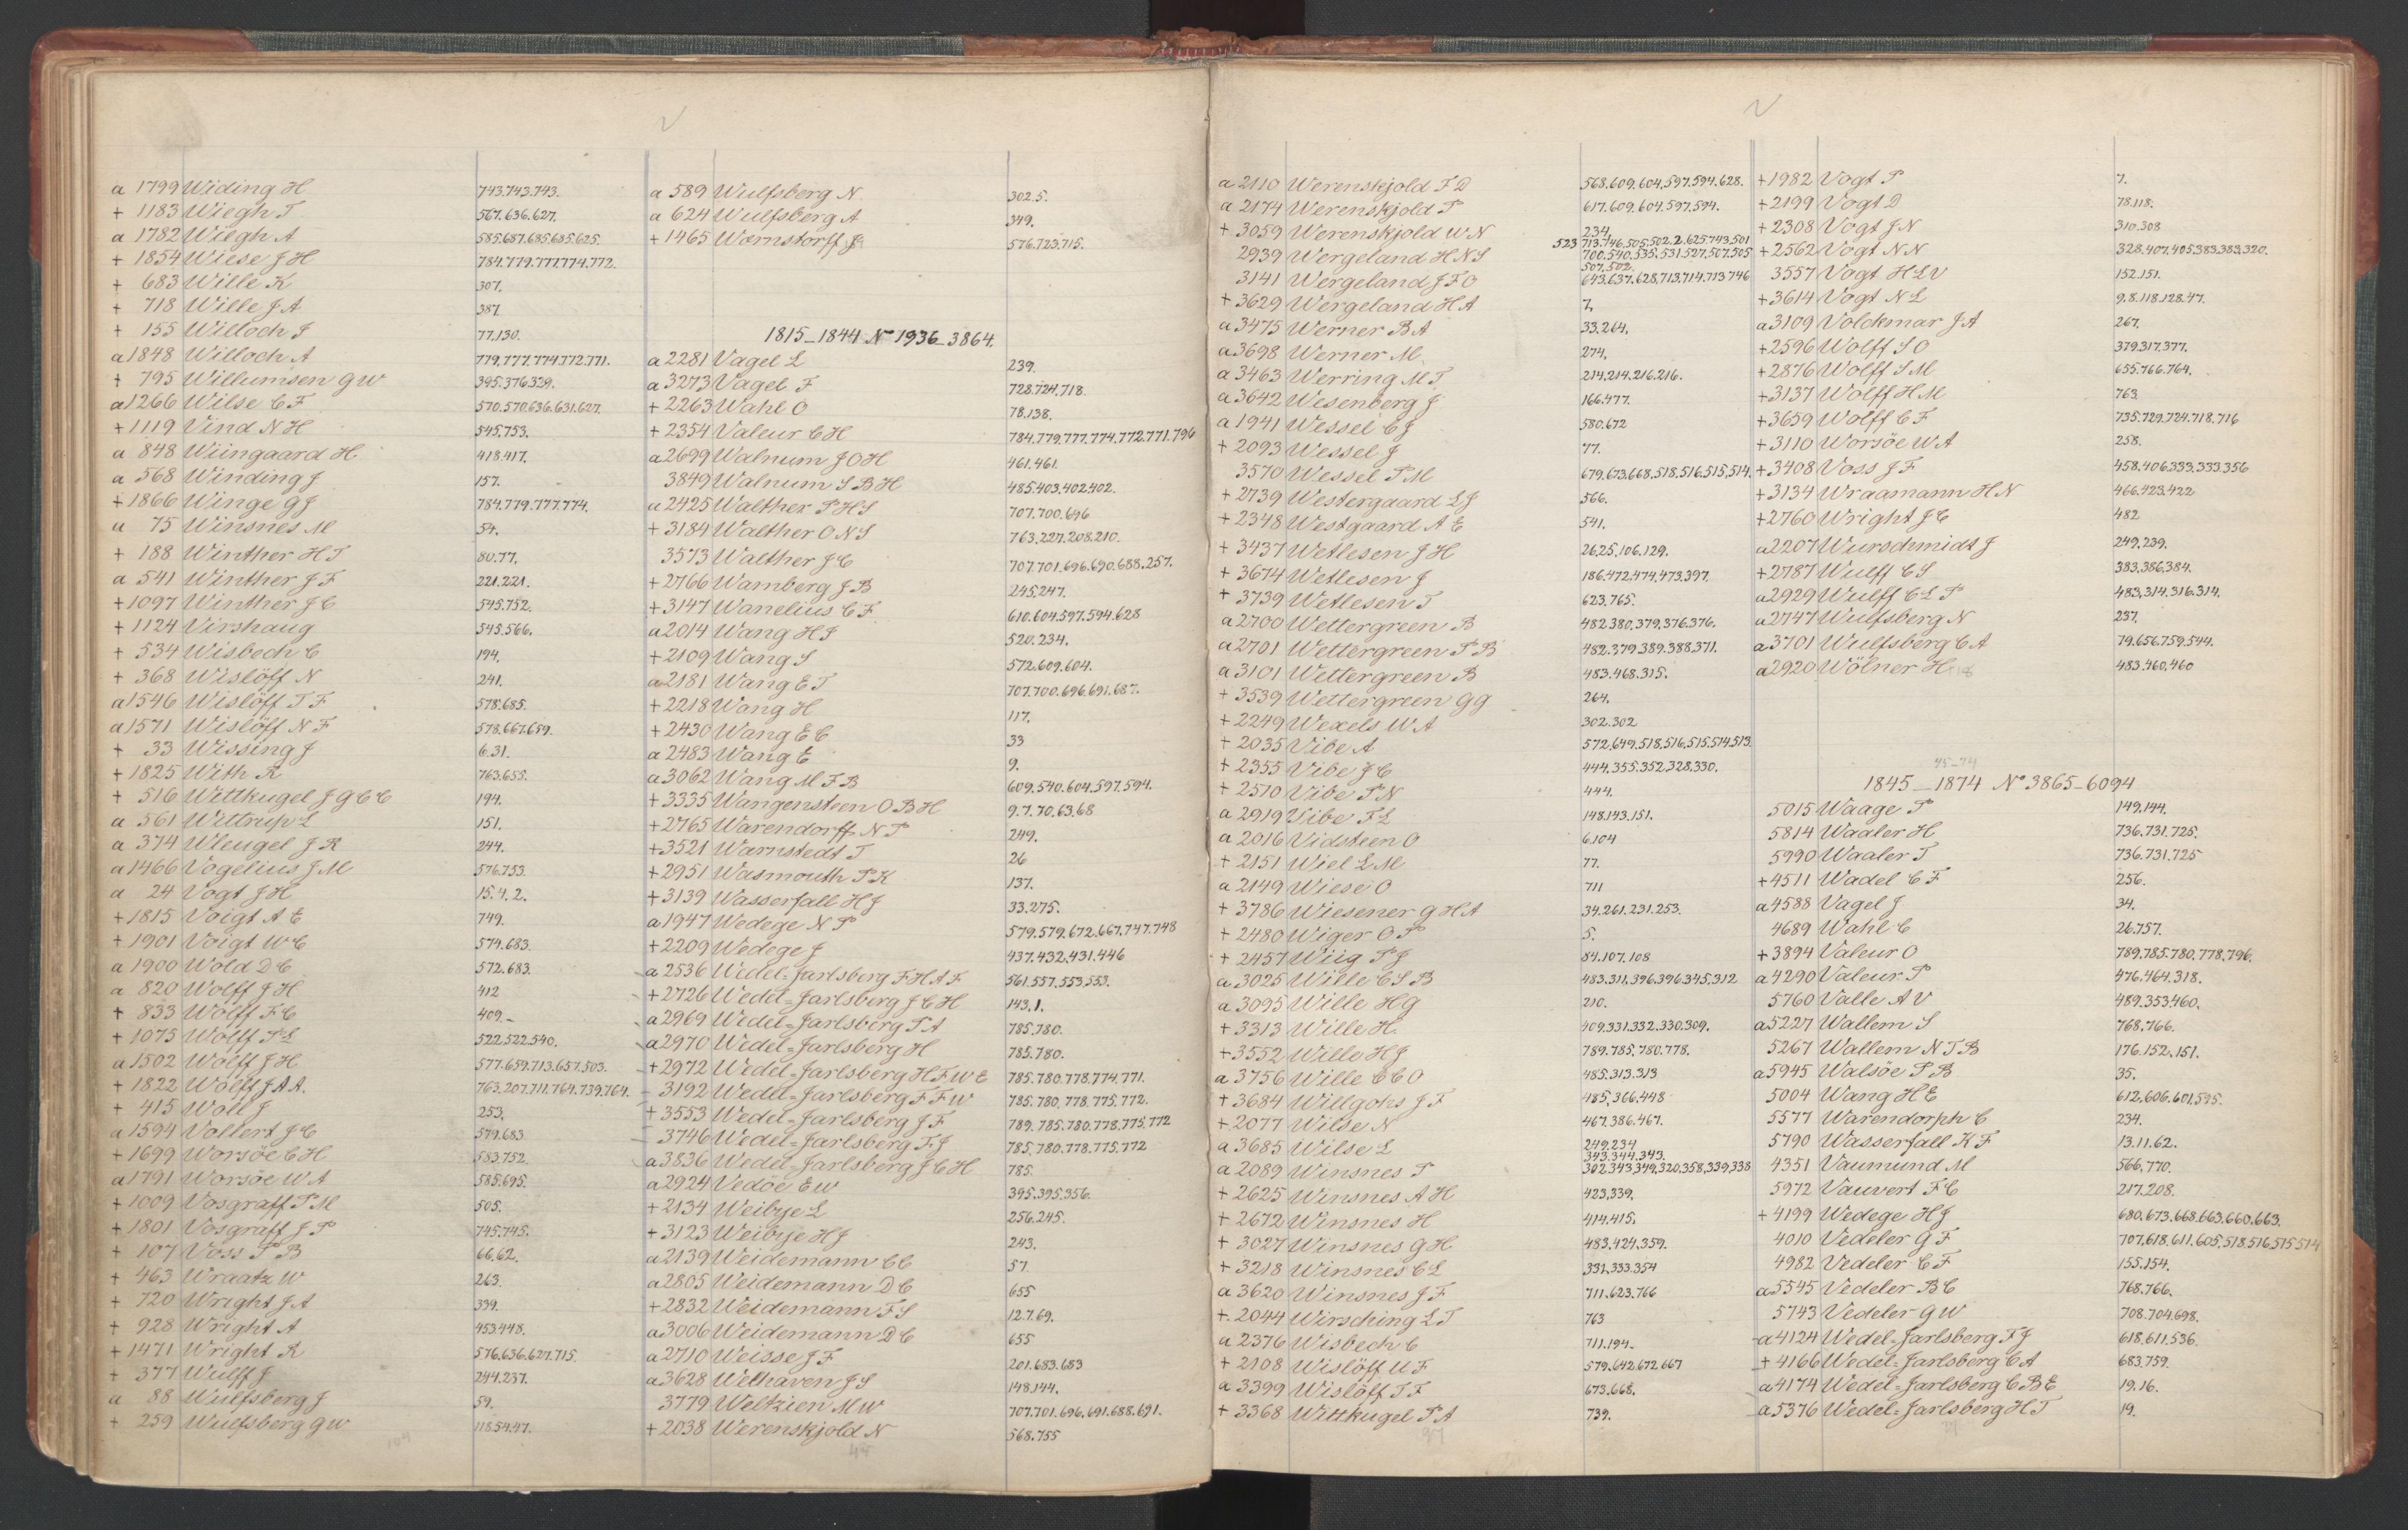 a 1799 Widing H 743.743.743.
+ 1183 Wiegh T 567.636.627.
a 1782 Wiegh A 585.657.635.635.625.
+ 1854 Wiese J H 784.779.777.774.772.
+ 683 Wille K 307.
+ 718 Wille J A 387.
+ 155 Willoch J 77.130.
a 1848 Willoch A 779.777.774.772.771.
+ 795 Willumsen G W 395.376.339.
a 1266 Wilse C F 570.570.636.631.627.
+ 1119 Vind N H 545.753.
a 848 Wiingaard H 418.417.
a 568 Winding J 157.
+ 1866 Winge G J 784.779.777.774.
a 75 Winsnes M 54.
+ 188 Winther H T 80.77.
a 541 Winther J F 221.221.
+ 1097 Winther J C 545.752.
+ 1124 Virshaug 545.566.
+ 534 Wisbech C 194.
+ 368 Wislöff N 241.
a 1546 Wislöff T F 578.685.
a 1571 Wislöff N F 578.667.659.
+ 33 Wissing J 6.31.
+ 1825 With R 763.655.
+ 516 Wittkugel J G C C 194.
a 561 Wittrup L 151.
a 374 Wleugel J R 244.
a 1466 Vogelius J M 576.753.
a 24 Vogt J H 15.4.2.
+ 1815 Voigt A E 749.
+ 1901 Voigt W C 579.683.
a 1900 Wold D C 572.683.
a 820 Wolff J H 412
+ 833 Wolff F C 409.-
+ 1075 Wolff P L 522.522.540.
a 1502 Wolff J H 577.659.713.657.503.
+ 1822 Wolff J A A. 763.207.711.764.739.764.
+ 415 Woll J 253.
a 1594 Vollert J C 579.683.
+ 1699 Worsöe C H 583.752.
a 1791 Worsöe W A 585.695.
+ 1009 Vosgraff P M 505.
+ 1801 Vosgraff J P 745.745.
+ 107 Voss P B 66.62.
+ 463 Wraatz W 263.
+ 720 Wright J A 339.
+ 928 Wright A 453.448.
+ 1471 Wright R 576.636.627.715.
+ 377 Wulff J 244.237.
a 88 Wulfsberg J 59.
+ 259 Wulfsberg G W 118.54.47.
a 589 Wulfsberg N 302.5.
a 624 Wulfsberg A 349.
+ 1465 Wörnstorff J 576.723.715.
1815_1844 No 1936_3864.
a 2281 Vagel L 239.
a 3273 Vagel F 728.724.718.
+ 2263 Wahl O 78.138.
+ 2354 Valeur C H 784.779.777.774.772.771.796
a 2699 Walnum J O H 461.461.
3849 Walnum S B H 485.403.402.402.
a 2425 Walther P H S 707.700.696
+ 3184 Walther O N S 763.227.208.210.
3573 Walther J C 707.701.696.690.688.257.
+ 2766 Wamberg J B 245.247.
+ 3147 Wanelius C F 610.604.597.594.628
a 2014 Wang H J 520.234.
+ 2109 Wang S 572.609.604.
a 2181 Wang E T 707.700.696.691.687.
+ 2218 Wang H 117.
+ 2430 Wang E C 33
a 2483 Wang E 9.
a 3062 Wang M F B 609.540.604.597.594.
+ 3335 Wangensteen O B H 9.7.70.63.68
+ 2765 Warendorff N P 249.
+ 3521 Warnstedt T 26
+ 2951 Wasmouth P K 137.
+ 3139 Wasserfall H J 33.275.
a 1947 Wedege N P 579.579.672.667.747.748
+ 2209 Wedege J 437.432.431.446
a 2536 Wedel=Jarlsberg F H A F 561.557.553.553.
+ 2726 Wedel=Jarlsberg J C H 143.1.
a 2969 Wedel=Jarlsberg P A 785.780.
a 2970 Wedel=Jarlsberg H 785.780.
+ 2972 Wedel=Jarlsberg H F W E 785.780.778.774.771.
3192 Wedel=Jarlsberg F F W 785.780.778.775.772.
+ 3553 Wedel=Jarlsberg J F 789.785.780.778.775.772
3746 Wedel=Jarlsberg F J 785.780.778.775.772
a 3836 Wedel=Jarlsberg J C H 785.
a 2924 Vedöe E W 395.395.356.
+ 2134 Weibye L 256.245.
+ 3123 Weibye H J 243.
a 2139 Weidemann C C 57.
a 2805 Weidemann D C 655
+ 2832 Weidemann F S 12.7.69.
a 3006 Weidemann D C 655
a 2710 Weisse J F 201.683.683
a 3628 Welhaven J S 148.144.
3779 Weltzien M W 707.701.696.691.688.691.
+ 2038 Werenskjold N 568.755
a 2110 Werenskjold F D 568.609.604.597.594.628.
a 2174 Werenskjold P 617.609.604.597.594.
+ 3059 Werenskjold W N 234.
2939 Wergeland H N S 523 713.746.505.502.2.625.743.501 700.540.535.531.527.507.505 507.502.
3141 Wergeland J F O 643.637.628.713.714.713.746
+ 3629 Wergeland H A 7.
a 3475 Werner B A 33.264.
a 3698 Werner M 274.
a 3463 Werring M T 214.214.216.216.
a 3642 Wesenberg J 166.477.
a 1941 Wessel C J 580.672
+ 2093 Wessel J 77.
3570 Wessel P M 679.673.668.518.516.515.514.
+ 2739 Westergaard L J 566.
+ 2348 Westgaard A E 541.
+ 3437 Wetlesen J H 26.25.106.129.
+ 3674 Wetlesen J 186.472.474.473.397.
+ 3739 Wetlesen T 623.765.
a 2700 Wettergreen B 482.380.379.376.376.
a 2701 Wettergreen P B 482.379.389.388.371.
a 3101 Wettergreen B 483.468.315.
+ 3539 Wettergreen G G 264.
+ 2249 Wexels W A 302.302
+ 2035 Vibe A 572.649.518.516.515.514.513.
+ 2355 Vibe J C 444.355.352.328.330.
+ 2510 Vibe P N 444.
a 2919 Vibe F L 148.143.151.
a 2016 Vidsteen O 6.104
+ 2151 Wiel L M 77.
a 2149 Wiese O 711
+ 3786 Wiesener G H A 34.261.231.253.
+ 2480 Wiger O P 5.
+ 2457 Wiig P J 84.107.108
a 3025 Wille C S B 483.311.396.396.345.312
a 3095 Wille H G 210.
+ 3313 Wille H. 409.331.332.330.309.
+ 3552 Wille H J 789.785.780.778.
a 3756 Wille C C O 485.313.313
+ 3684 Willgohs J F 485.366.448
+ 2077 Wilse N 467.386.467.
a 3685 Wilse L 249.234
a 2089 Winsnes P 343.344.343. 302.343.349.320.358.339.338
+ 2625 Winsnes A H 423.339.
+ 2672 Winsnes H 414.415.
+ 3027 Winsnes G H 483.424.359.
+ 3218 Winsnes C L 331.333.354
a 3620 Winsnes J F 711.623.766
+ 2044 Wirsching L T 763
a 2376 Wisbech C 711.194.
+ 2108 Wislöff U F 579.642.672.667
a 3399 Wislöff T F 673.668.
+ 3368 Wittkugel P A 739.
+ 1982 Vogt P 7.
+ 2199 Vogt D 78.118.
+ 2308 Vogt J N 310.308
+ 2562 Vogt N N 328.407.405.383.383.320.
3557 Vogt H L V 152.151.
+ 3614 Vogt N L 9.8.118.128.47.
a 3109 Volckmar J A 267.
+ 2596 Wolff S O 379.317.377.
+ 2876 Wolff S M 655.766.764.
+ 3137 Wolff H M 763
+ 3659 Wolff C F 735.729.724.718.716
+ 3110 Worsöe W A 258.
+ 3408 Voss J F 458.406.333.333.356
+ 3134 Wraamann H N 466.423.422
+ 2760 Wright J C 482
a 2207 Wurschmidt J 249.239.
+ 2787 Wulff C S 383.386.384.
a 2929 Wulff C L P 483.314.316.314.
a 2747 Wulfsberg N 237.
a 3701 Wulfsberg C A 79.656.759.544.
a 2920 Wölner H 483.460.460
45-74
1845_1874 No 3865-6094
5015 Waage P 149.144.
5814 Waaler H 736.731.725.
5990 Waaler T 736.731.725
+ 4511 Wadel C F 256.
a 4588 Vagel J 34.
4689 Wahl C 26.757.
+ 3894 Valeur O 789.785.780.778.796.
a 4290 Valeur P 476.464.318.
5760 Valle A V 489.353.460.
a 5227 Wallem S 768.766.
5267 Wallem N T B 176.152.151.
a 5945 Walsöe P B 35.
5004 Wang H E 612.606.601.595.
5577 Warendorph C 234.
5790 Wasserfall K F 13.11.62.
4351 Vaumund M 566.770.
5972 Vauvert F C 217.208.
+ 4199 Wedege H J 680.673.668.663.660.663.
4010 Vedeler G F 707.618.611.605.518.516.515.514
4982 Vedeler C F 155.154.
a 5545 Vedeler B C 768.766.
5743 Vedeler G W 708.704.698.
a 4124 Wedel=Jarlsberg F J 618.611.536.
+ 4166 Wedel=Jarlsberg C A 683.759.
a 4174 Wedel=Jarlsberg C B E 19.16.
a 5376 Wedel=Jarlsberg H T 19.